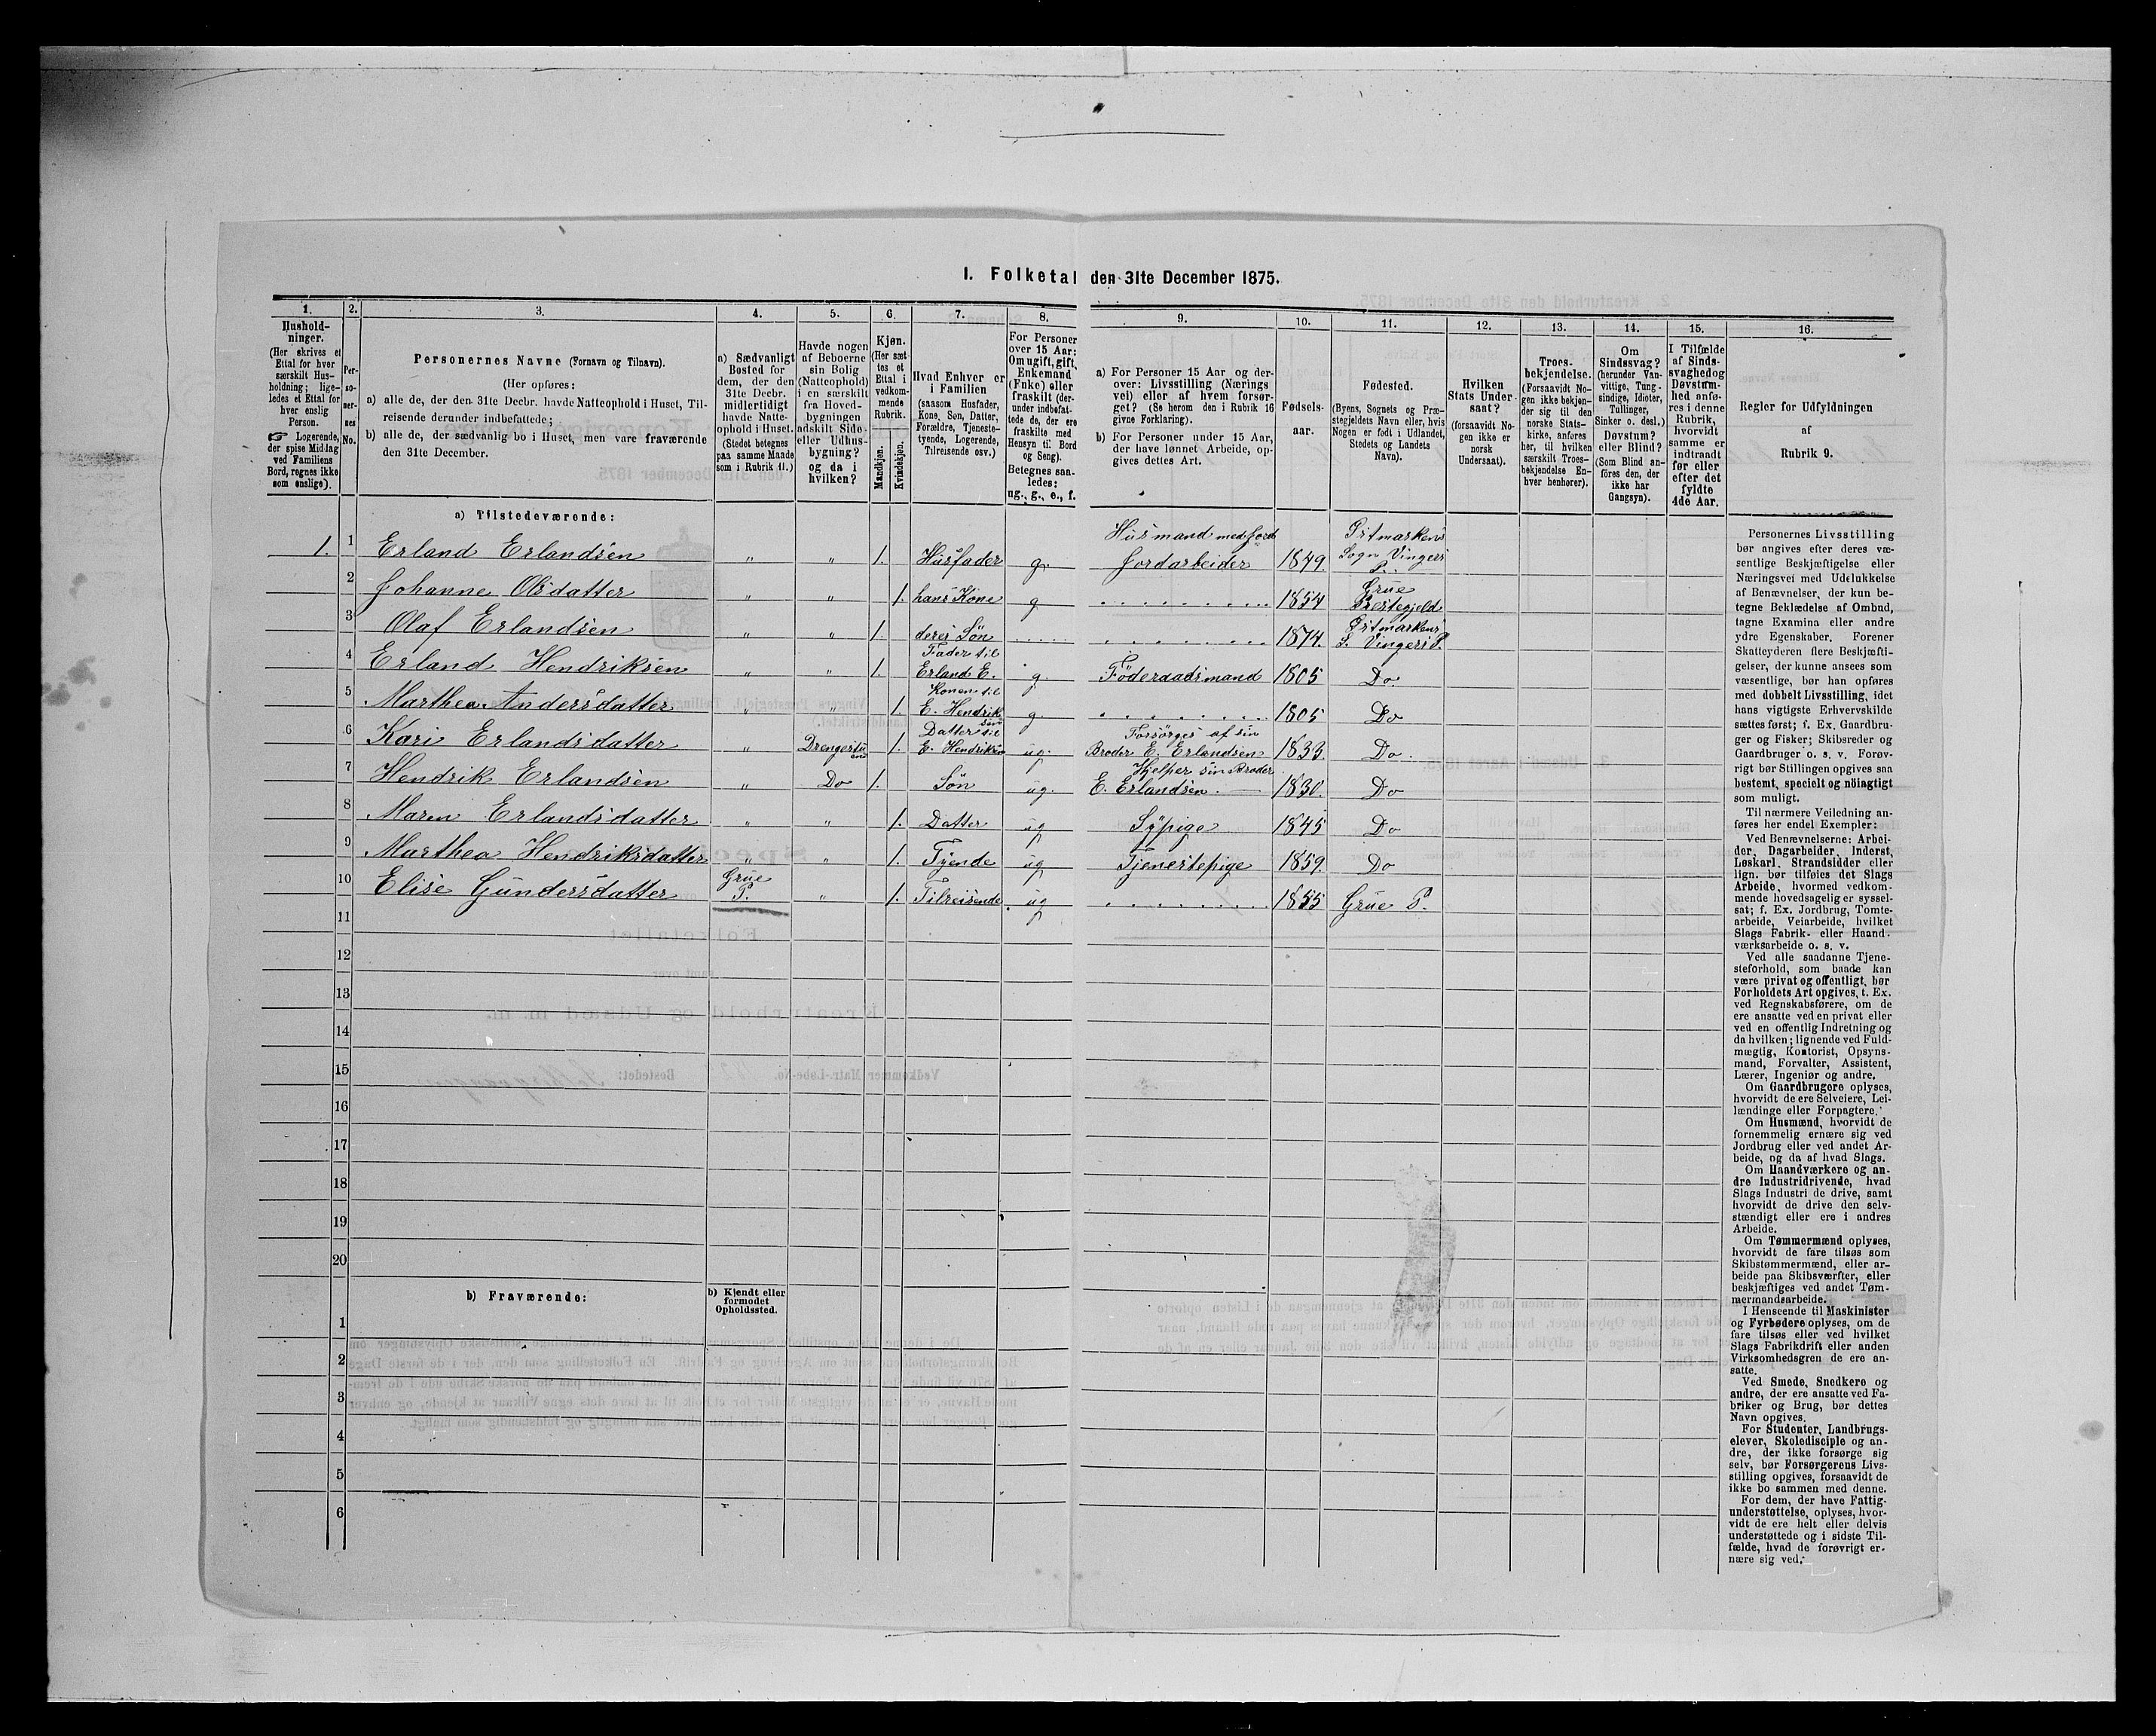 I. Folketal den 31te December 1875.
1. 2. 3. 4. 5. 6. 7. 8. 9. 10. 11. 12. 13. 14. 15. 16.
Hushold-
ninger.
(Her skrives et
Ettal for hver
særskilt Hus-
holdning; lige-
ledes et Ettal for
hver enslig
Person.
☞ Logerende,
der spise Middag
ved Familiens
Bord, regnes ikke
som enslige).
Per-
so-
ner-
nes
No.
Personernes Navne (Fornavn og Tilnavn).
(Her opføres:
a) alle de, der den 31te Decbr. havde Natteophold i Huset, Til-
reisende derunder indbefattede;
b) alle de, der sædvanlig bo i Huset, men vare fraværende
den 31te December.
a) Sædvanligt
Bosted for
dem, der den
31te Decbr.
midlertidigt
havde Natte-
ophold i Huset.
(Stedet betegnes
paa samme Maade
som i Rubrik 11.)
Havde nogen
af Beboerne
sin Bolig
(Natteophold)
i en særskilt
fra Hoved-
bygningen
adskilt Side-
eller Udhus-
bygning?
og da i
hvilken?
Kjøn.
(Her sæt-
tes et
Ettal i
vedkom-
mende
Rubrik.
Mandkjøn.
Kvindekjøn.
Hvad Enhver er
i Familien
(saasom Husfader,
Kone, Søn, Datter,
Forældre, Tjeneste-
tyende, Logerende,
Tilreisende osv.)
For Personer
over 15 Aar:
Om ugift, gift,
Enkemand
(Enke) eller
fraskilt (der-
under indbefat-
tede de, der ere
fraskilte med
Hensyn til Bord
og Seng).
Betegnes saa-
ledes:
ug., g., e., f.
a) For Personer 15 Aar og der-
over: Livsstilling (Nærings
vei) eller af hvem forsør-
get? (Se herom den i Rubrik 16
givne Forklaring).
b) For Personer under 15 Aar,
der have lønnet Arbeide, op-
gives dettes Art.
Fødsels-
aar.
Fødested.
(Byens, Sognets og Præ-
stegjeldets Navn eller, hvis
Nogen er født i Udlandet,
Stedets og Landets
Navn).
Hvilken
Stats Under-
saat?
(forsaavidt No-
gen ikke er
norsk
Undersaat).
Troes-
bekjendelse.
(Forsaavidt No-
gen ikke bekjen-
der sig til den
norske Stats-
kirke, anføres
her, til hvilken
særskilt Troes-
bekjendelse En-
hver henhører).
Om
Sindssvag?
(herunder Van-
vittige, Tung-
sindige, Idioter,
Tullinger,
Sinker o. desl.)
Døvstum?
eller Blind?
(Som Blind an-
føres den, der
ikke har
Gangsyn).
I Tilfælde
af Sinds-
svaghed og
Døvstum-
hed anfø-
res i denne
Rubrik,
hvorvidt
samme er
indtraadt
før eller
efter det
fyldte
4de Aar.
Regler for Udfyldningen
af
Rubrik 9.
a) Tilstedeværende:
1. 1 Erland Erlandsen „ „ 1. Husfader g. Husmand med Jord Jordarbeider 1849. Østmarkens Sogn Vingers P.
2 Johanne Olsdatter „ „ 1. hans Kone g 1854 Grue Præstegjeld
3 Olaf Erlandsen „ „ 1. deres Søn 1874. Østmarkens S. Vingers P.
4 Erland Hendriksen „ „ 1. Fader til Erland E. g. Föderaadsmand 1805 Do.
5 Marthea Andersdatter „ „ 1. Konen til E. Hendriksen g. 1805 Do
6 Kari Erlandsdatter „ Drengestuen 1. Datter til E. Hendriksen ug. Forsörges af sin Broder E. Erlandsen 1833. Do.
7 Hendrik Erlandsen „ Do 1. Søn ug. Hjelper sin Broder E. Erlandsen. 1830. Do
8 Maren Erlandsdatter „ „ 1. Datter ug Sÿpige 1845 Do
9 Marthea Hendriksdatter „ „ 1. Tÿende ug Tjenestepige 1859. Do
10 Elise Gundersdatter Grue P. „ 1. Tilreisende ug 1855 Grue P.
11
12
13
14
15
16
17
18
19
20
b) Fraværende:
b) Kjendt eller
formodet
Opholdssted.
1
2
3
4
5
6
Personernes Livsstilling
bør angives efter deres væ-
sentlige Beskjæftigelse eller
Næringsvei med Udelukkelse
af Benævnelser, der kun be-
tegne Beklædelse af Ombud,
tagne Examina eller andre
ydre Egenskaber. Forener
Skatteyderen flere Beskjæfti-
gelser, der kunne ansees som
væsentlige, bør han opføres
med dobbelt Livsstilling, idet
hans vigtigste Erhvervskilde
sættes først; f. Ex. Gaardbru-
ger og Fisker; Skibsreder og
Gaardbruger o. s. v. Forøv-
rigt bør Stillingen opgives saa
bestemt, specielt og nöiagtigt
som muligt.
Til nærmere Veiledning an-
føres her endel Exempler:
Ved Benævnelserne: Arbei-
der, Dagarbeider, Inderst,
Løskarl, Strandsidder eller
lign. bør tilføies det Slags
Arbeide, hvormed vedkom-
mende hovedsagelig er syssel-
sat; f. Ex. Jordbrug, Tomte-
arbeide, Veiarbeide, hvilket
Slags Fabrik- eller Haand-
værksarbeide o. s. v.
Ved alle saadanne Tjene-
steforhold, som baade kan
være privat og offentligt, bør
Forholdets Art opgives, t. Ex.
ved Regnskabsførere, om de
ere ansatte ved en privat eller
ved en offentlig Indretning og
da hvilken; lignende ved Fuld-
mægtig, Kontorist, Opsyns-
mand, Forvalter, Assistent,
Lærer, Ingeniør og andre.
Om Gaardbrugere oplyses,
hvorvidt de ere Selveiere, Lei-
lændinge eller Forpagtere.
Om Husmænd, hvorvidt de
fornemmelig ernære sig ved
Jordbrug eller ved andet Ar-
beide, og da af hvad Slags.
Om Haandværkere og an-
dre Industridrivende, hvad
Slags Industri de drive, samt
hvorvidt de drive den selv-
stændigt eller ere i andres
Arbeide.
Om Tømmermænd oplyses,
hvorvidt de fare tilsøs som
Skibstømmermænd, eller ar-
beide paa Skibsværfter, eller
beskjæftiges ved andet Tøm-
mermandsarbeide.
I Henseende til Maskinister
og Fyrbødere oplyses, om de
fare tilsøs eller ved hvilket
Slags Fabrikdrift eller anden
Virksomhedsgren de ere an-
satte.
Ved Smede, Snedkere og
andre, der ere ansatte ved Fa-
briker og Brug, bør dettes
Navn opgives.
For Studenter, Landbrugs-
elever, Skoledisciple og an-
dre, der ikke forsørge sig
selv, bør Forsørgerens Livs-
stilling opgives, forsaavidt de
ikke bo sammen med denne.
For dem, der have Fattig-
understøttelse, oplyses, hvor-
vidt de ere helt eller delvis
understøttede og i sidste Til-
fælde, hvad de forøvrigt er-
nære sig ved.